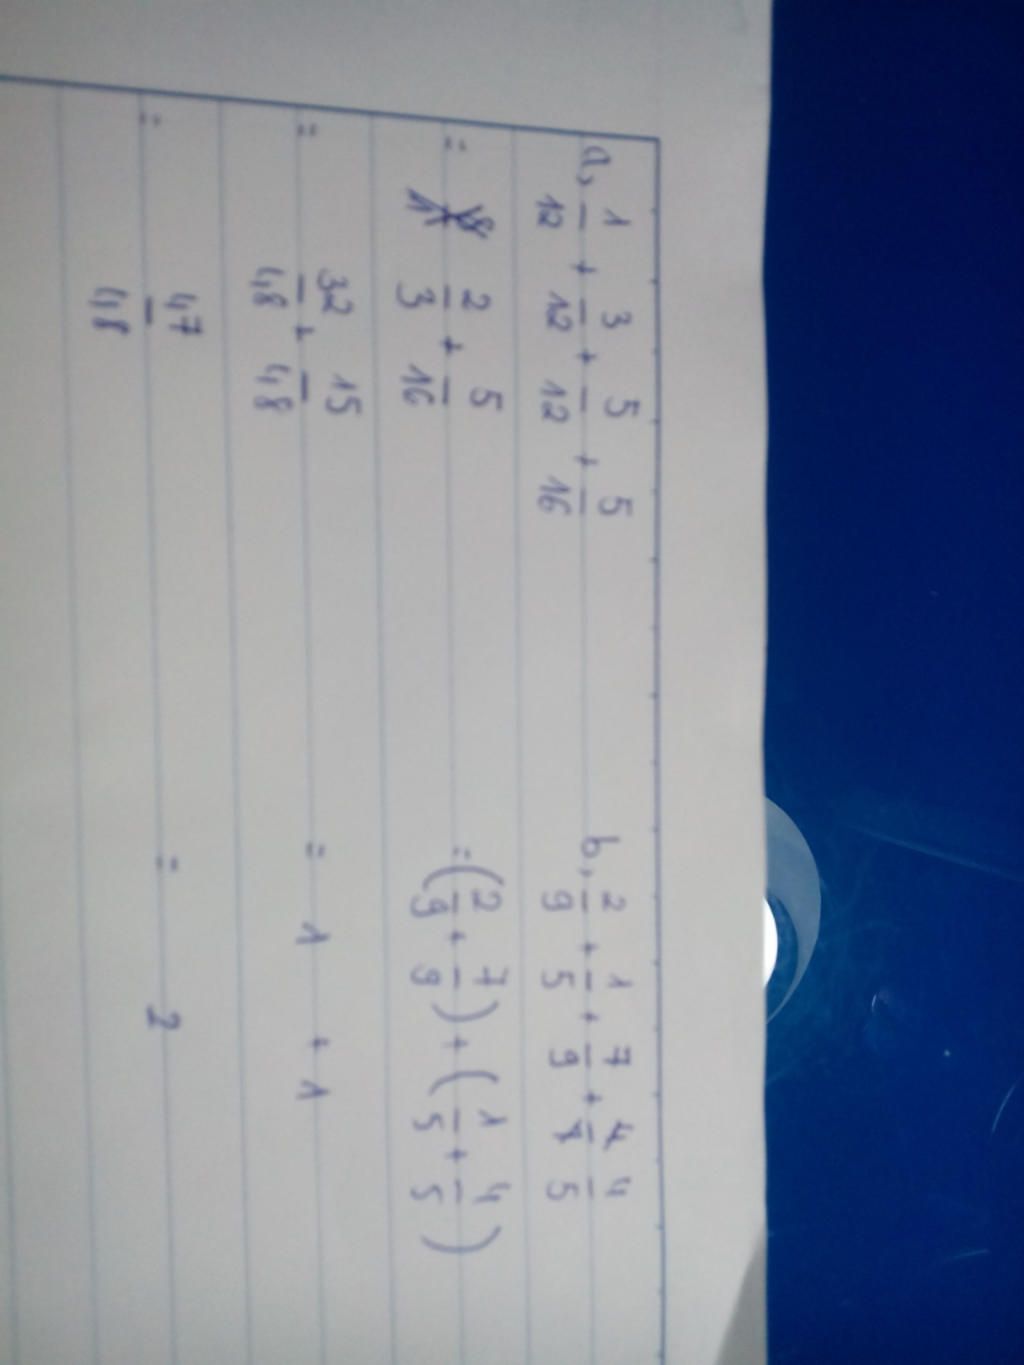 a, 1/12 + 3/12 + 5/12 + 5/16
= 2/3 + 5/16
= 32/48 + 15/48
= 47/48
b, 2/9 + 1/5 + 7/9 + 4/5
= (2/9 + 7/9) + (1/5 + 4/5)
= 1 + 1
= 2